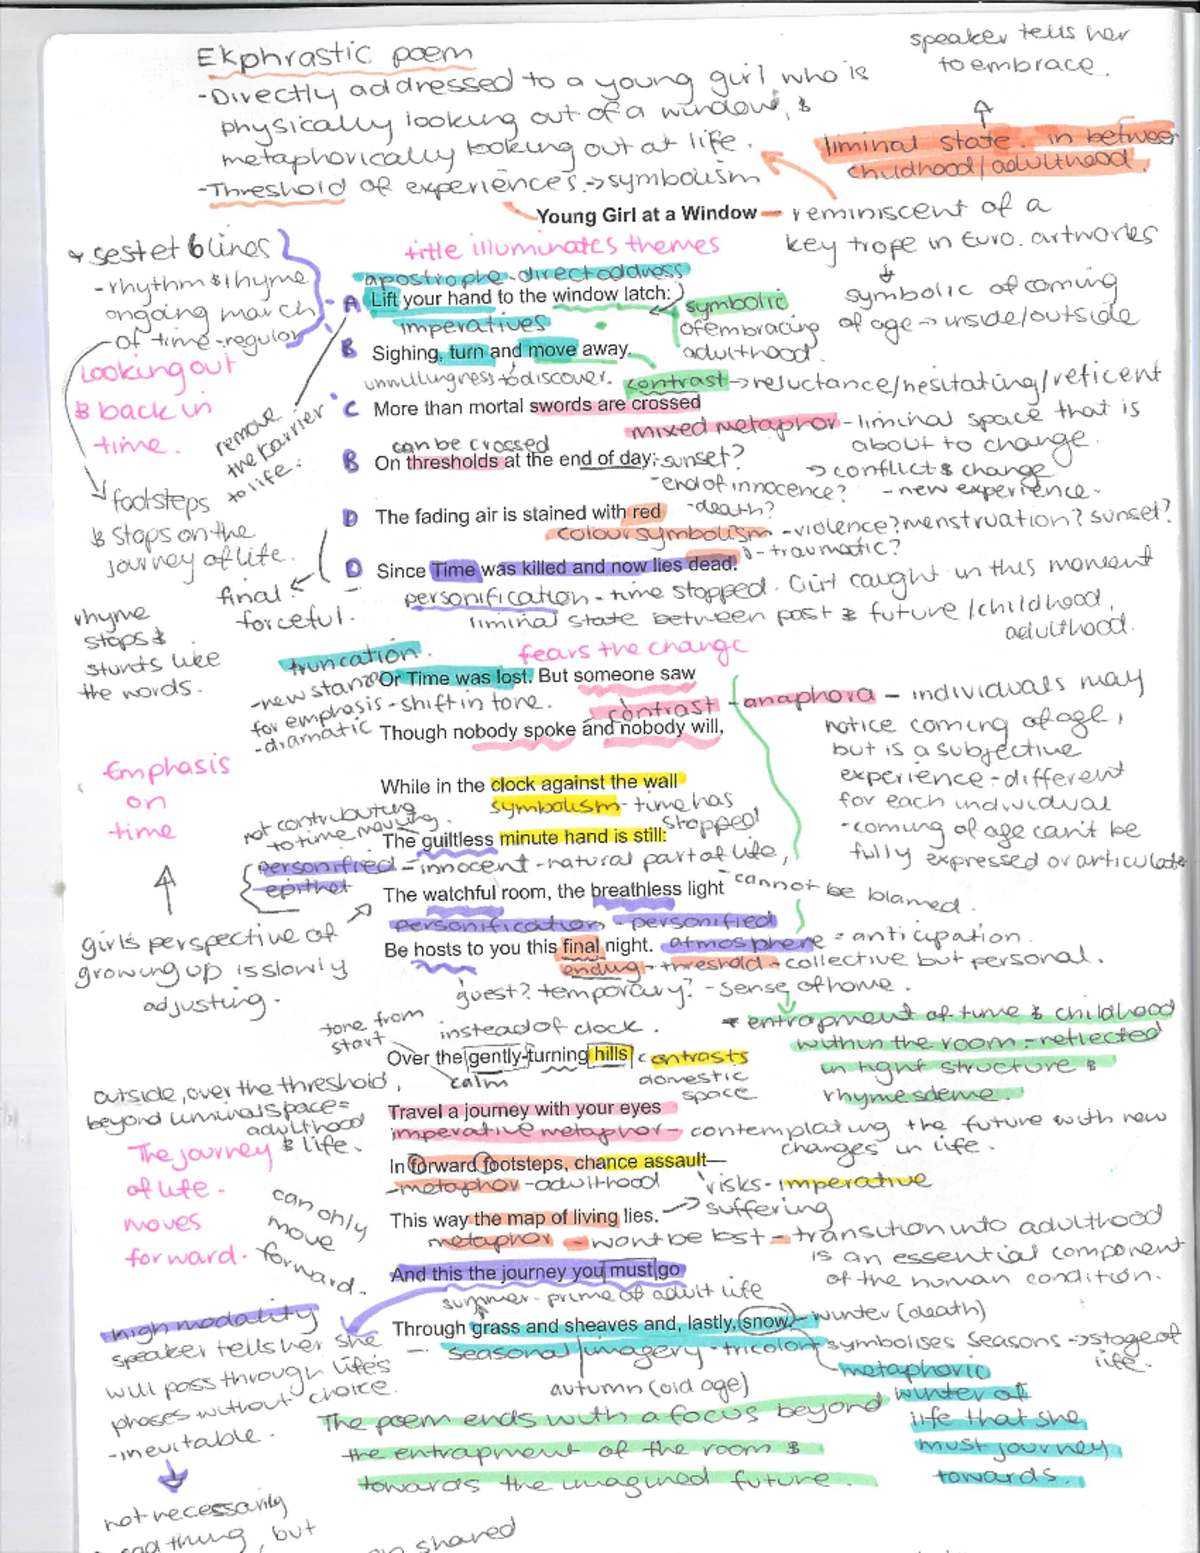 speaker tells her
to embrace.
Ekphrastic poem
-Directly addressed to a young girl who is
physically looking out of a window, &
metaphorically looking out at life.
-Threshold of experiences.→symbolism
liminal state. in between
childhood/adulthood.
Young Girl at a Window — reminiscent of a
key trope in Euro. artworks
symbolic of coming
of age → inside/outside
title illuminates themes
sestet 6 lines
-rhythm & rhyme
ongoing march
of time - regular
Looking out
& back in
time.
footsteps
& stops on the
journey of life.
apostrophe - direct address
A Lift your hand to the window latch:
imperatives
symbolic
of embracing
adulthood.
B Sighing, turn and move away.
unwillingness to discover.
contrast → reluctance/hesitating/reticent
remove
the barrier
to life.
C More than mortal swords are crossed
mixed metaphor - liminal space that is
about to change.
can be crossed
B On thresholds at the end of day; - sunset?
→ conflict & change
-end of innocence?
- new experience.
-death?
D The fading air is stained with red
colour symbolism - violence? menstruation? sunset?
- traumatic?
D Since Time was killed and now lies dead.
personification - time stopped. Girl caught in this moment
liminal state between past & future/childhood,
adulthood.
final
forceful.
rhyme
stops &
stunts like
the words.
truncation.
fears the change
Or Time was lost. But someone saw
-new stanza
for emphasis - shift in tone.
-dramatic
contrast
Though nobody spoke and nobody will,
-anaphora - individuals may
notice coming of age,
but is a subjective
experience - different
for each individual
-coming of age can't be
fully expressed or articulate
Emphasis
on
time
While in the clock against the wall
symbolism - time has
stopped
not contributing
to time moving.
The guiltless minute hand is still:
personified - innocent - natural part of life,
epithet
- cannot be blamed.
The watchful room, the breathless light
personification - personified
Be hosts to you this final night.
atmosphere = anticipation.
ending - threshold - collective but personal.
guest? temporary? - sense of home.
girl's perspective of
growing up is slowly
adjusting.
entrapment of time & childhood
within the room - reflected
in tight structure &
rhyme scheme.
tone from
start
instead of clock.
Over the gently-turning hills
calm
contrasts
domestic
space
outside, over the threshold,
beyond liminal space =
adulthood
& life.
Travel a journey with your eyes
imperative metaphor - contemplating the future with new
changes in life.
The journey
of life
moves
forward.
can only
move
forward.
In forward footsteps, chance assault—
-metaphor - adulthood
risks - imperative
→ suffering
This way the map of living lies.
metaphor - wont be lost - transition into adulthood
is an essential component
of the human condition.
And this the journey you must go
summer - prime of adult life
high modality
speaker tells her she
will pass through life's
phases without choice.
-inevitable.
Through grass and sheaves and, lastly, snow.
- winter (death)
seasonal imagery - tricolon - symbolises seasons → stage of
life.
autumn (old age)
metaphoric
winter of
life that she
must journey
towards.
The poem ends with a focus beyond
the entrapment of the room &
towards the imagined future.
not necessarily
thing, but
shared